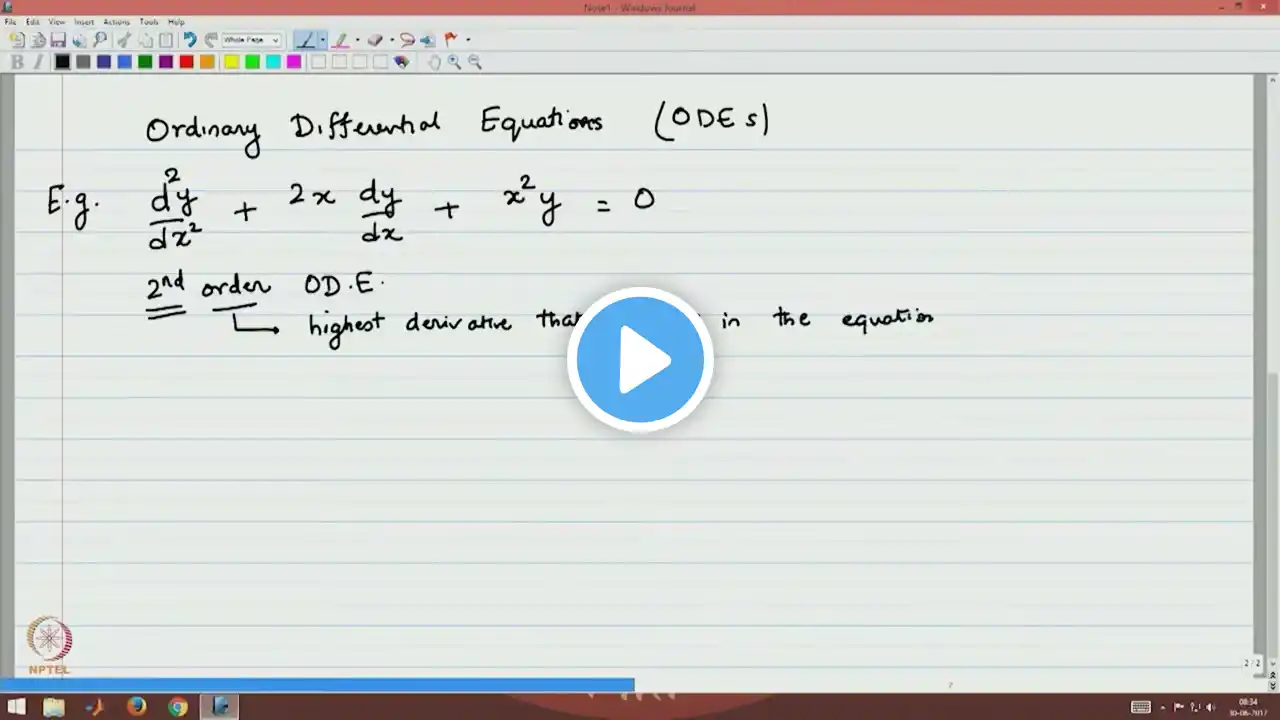 Note1 - Windows Journal
File Edit View Insert Actions Tools Help
Whole Page
Ordinary Differential Equations (ODEs)
E.g. d²y/dx² + 2x dy/dx + x²y = 0
2nd order O.D.E.
highest derivative that in the equation
NPTEL
2 / 2
08:34
30-06-2017